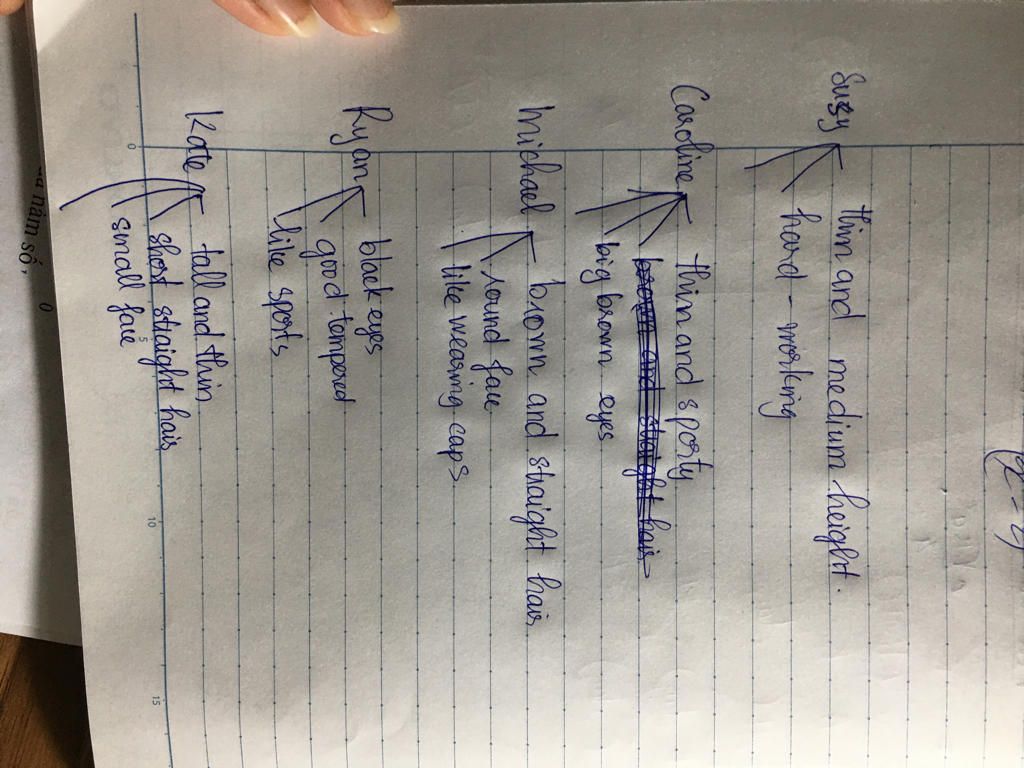 Suzy
thin and medium height.
hard - working
Caroline
thin and sporty
brown and straight hair
big brown eyes
Michael
brown and straight hair
round face
like wearing caps
Ryan
black eyes
good-tempered
like sports
Kate
tall and thin
short straight hair
small face
0
5
10
15
năm số,
0